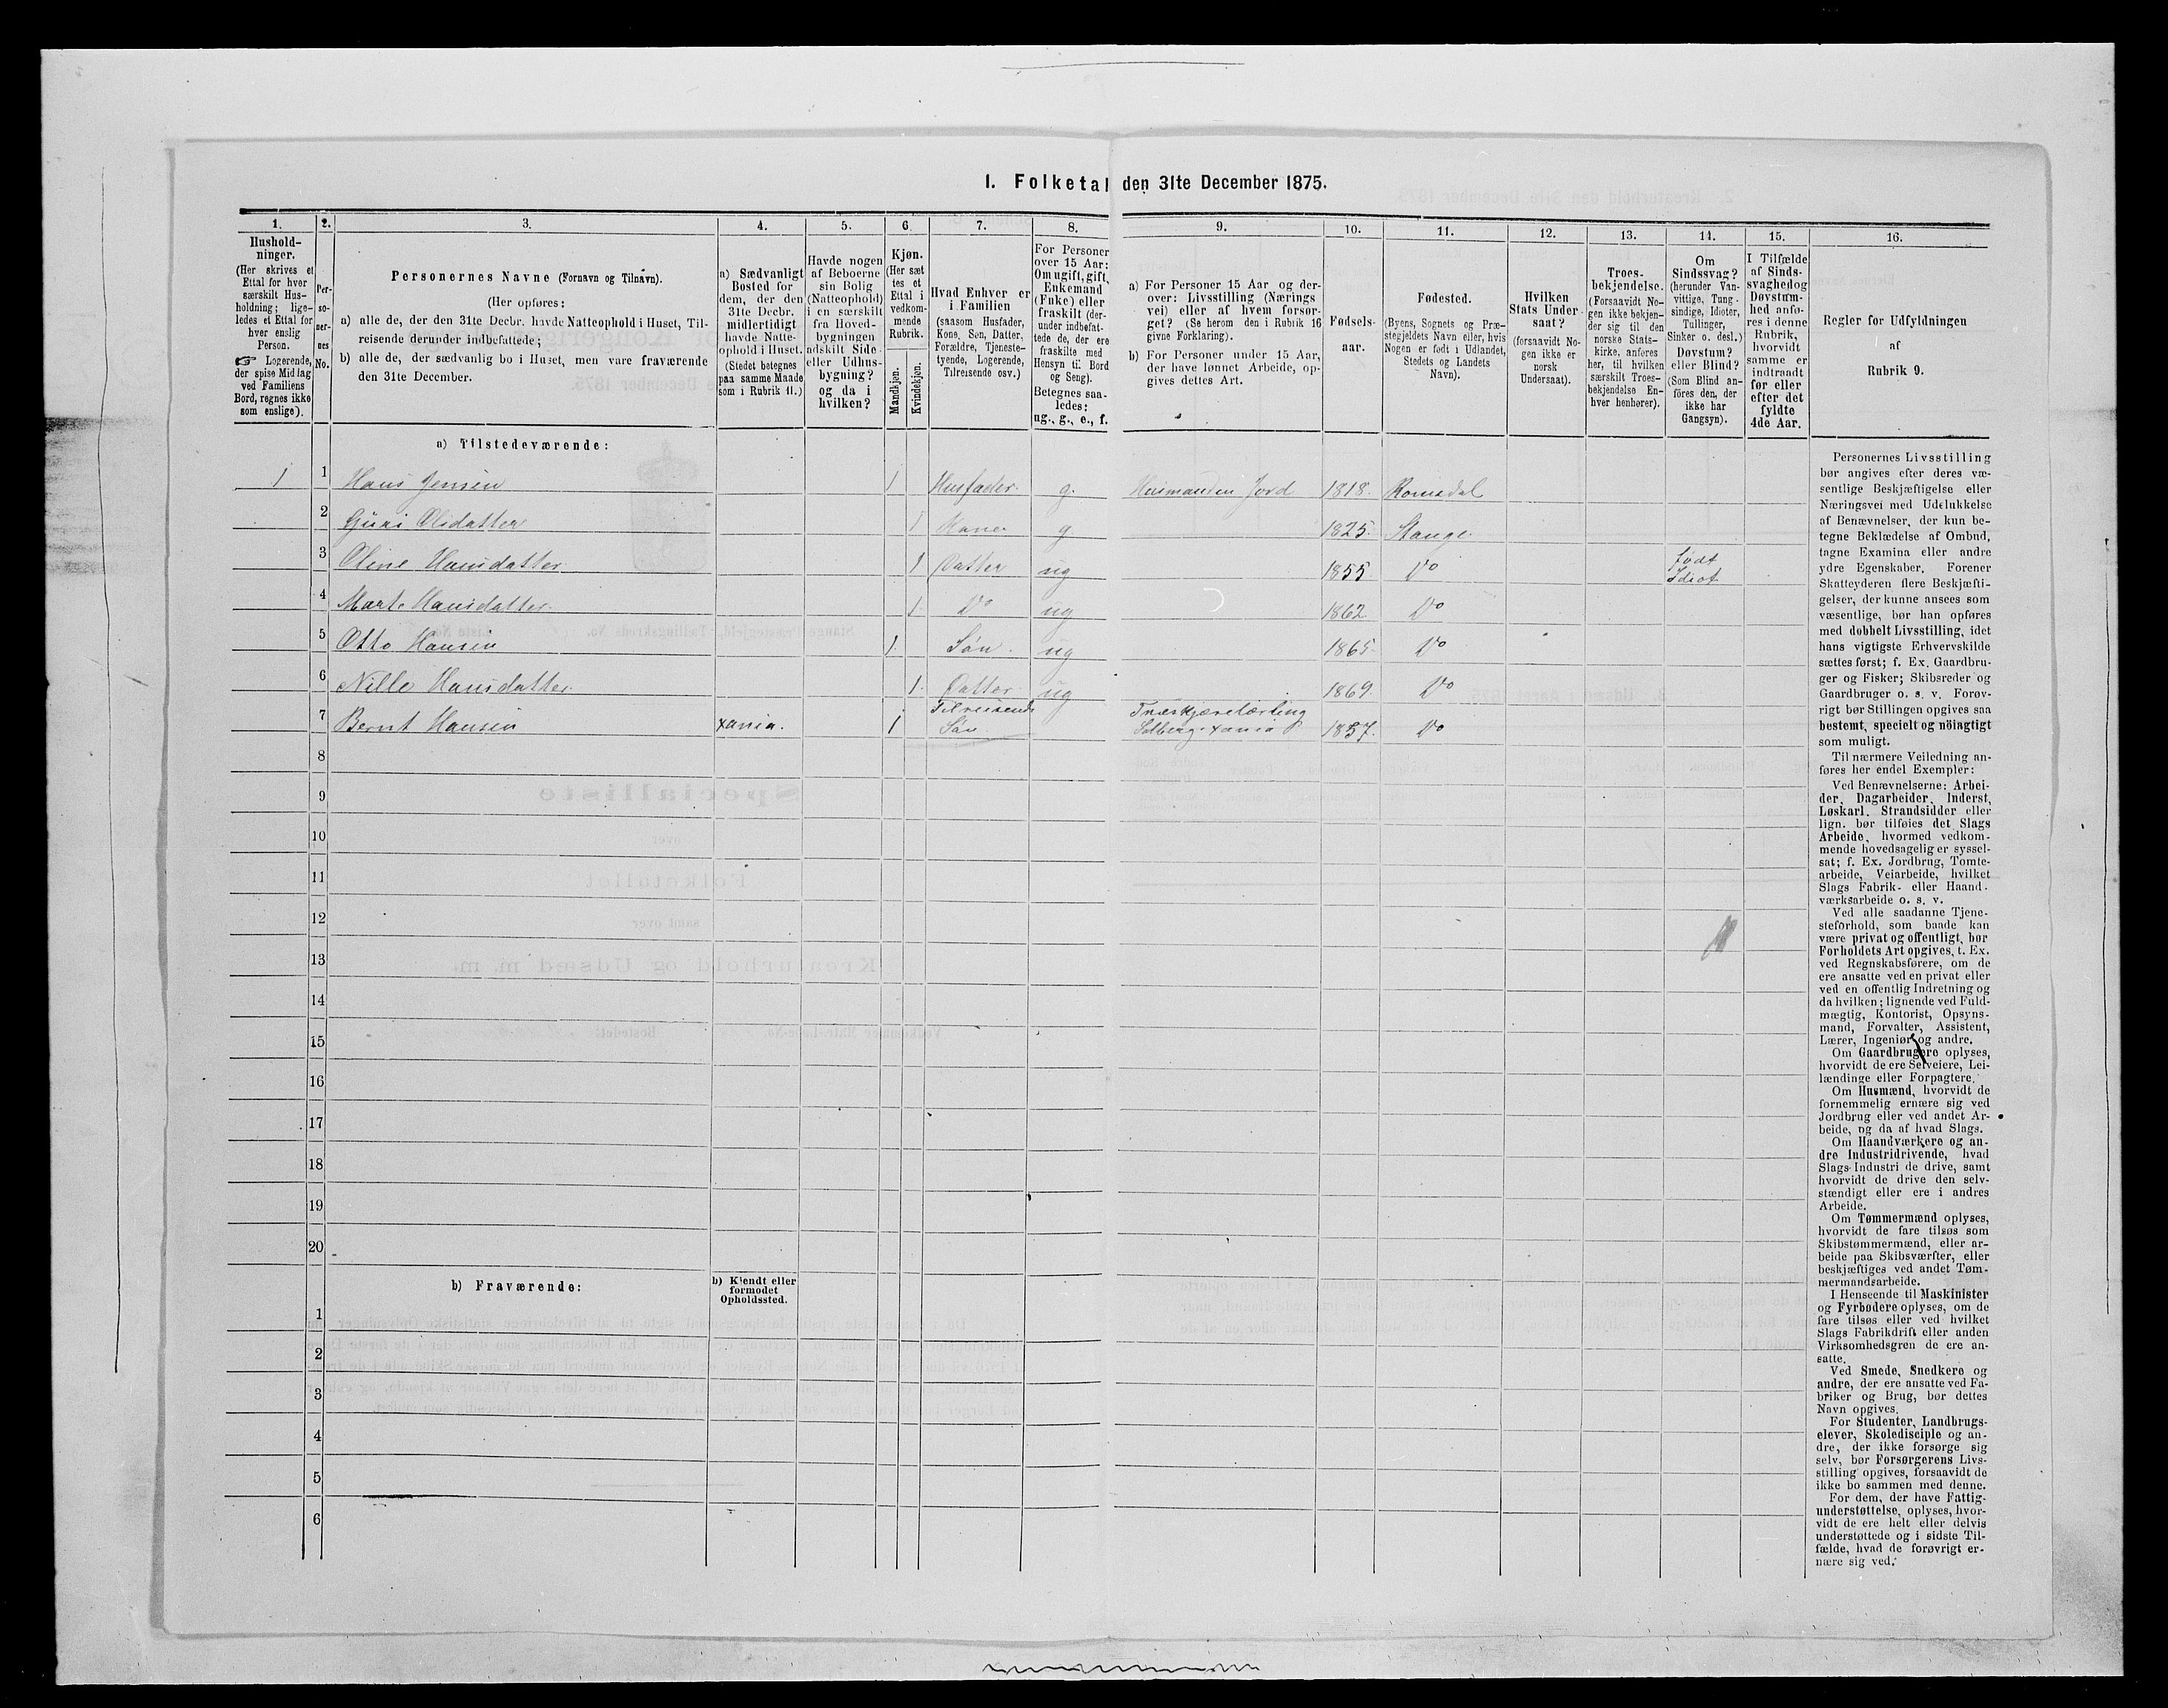 I. Folketal den 31te December 1875.
1. 2. 3. 4. 5. 6. 7. 8. 9. 10. 11. 12. 13. 14. 15. 16.
Hushold-
ninger.
(Her skrives et
Ettal for hver
særskilt Hus-
holdning; lige-
ledes et Ettal for
hver enslig
Person.
☞ Logerende,
der spise Middag
ved Familiens
Bord, regnes ikke
som enslige).
Per-
so-
ner-
nes
No.
Personernes Navne (Fornavn og Tilnavn).
(Her opføres:
a) alle de, der den 31te Decbr. havde Natteophold i Huset, Til-
reisende derunder indbefattede;
b) alle de, der sædvanlig bo i Huset, men vare fraværende
den 31te December.
a) Sædvanligt
Bosted for
dem, der den
31te Decbr.
midlertidigt
havde Natte-
ophold i Huset.
(Stedet betegnes
paa samme Maade
som i Rubrik 11.)
Havde nogen
af Beboerne
sin Bolig
(Natteophold)
i en særskilt
fra Hoved-
bygningen
adskilt Side-
eller Udhus-
bygning?
og da i
hvilken?
Kjøn.
(Her sæt
tes et
Ettal i
vedkom-
mende
Rubrik.
Mandkjøn.
Kvindekjøn.
Hvad Enhver er
i Familien
(saasom Husfader,
Kone, Søn, Datter,
Forældre, Tjeneste-
tyende, Logerende,
Tilreisende osv.)
For Personer
over 15 Aar:
Om ugift, gift,
Enkemand
(Enke) eller
fraskilt (der-
under indbefat-
tede de, der ere
fraskilte med
Hensyn til Bord
og Seng).
Betegnes saa-
ledes:
ug., g., e., f.
a) For Personer 15 Aar og der-
over: Livsstilling (Nærings
vei) eller af hvem forsør-
get? (Se herom den i Rubrik 16
givne Forklaring).
b) For Personer under 15 Aar,
der have lønnet Arbeide, op-
gives dettes Art.
Fødsels-
aar.
Fødested.
(Byens, Sognets og Præ-
stegjeldets Navn eller, hvis
Nogen er født i Udlandet,
Stedets og Landets
Navn).
Hvilken
Stats Under
saat?
(forsaavidt No-
gen ikke er
norsk
Undersaat).
Troes-
bekjendelse.
(Forsaavidt No-
gen ikke bekjen-
der sig til den
norske Stats-
kirke, anføres
her, til hvilken
særskilt Troes-
bekjendelse En-
hver henhører).
Om
Sindssvag?
(herunder Van-
vittige, Tung-
sindige, Idioter,
Tullinger,
Sinker o. desl.)
Døvstum?
eller Blind?
(Som Blind an-
føres den, der
ikke har
Gangsyn).
I Tilfælde
af Sinds-
svaghed og
Døvstum-
hed anfø-
res i denne
Rubrik,
hvorvidt
samme er
indtraadt
før eller
efter det
fyldte
4de Aar.
Regler for Udfyldningen
af
Rubrik 9.
a) Tilstedeværende:
1 1 Hans Jensen 1 Husfader. g. Husmand m Jord 1818. Romsdal
2 Guri Olsdatter 1 Kone. g. 1825. Stange
3 Oline Hansdatter 1 Datter ug 1855 Do Født Idiot
4 Marte Hansdatter 1. Do ug 1862 Do
5 Otto Hansen 1. Søn. ug 1865. Do
6 Nille Hansdatter 1. Datter ug 1869. Do
7 Bernt Hansen Xania. 1 Tilreisende Søn Solberg Xania 1857. Do
8
9
10
11
12
13
14
15
16
17
18
19
20
b) Fraværende:
b) Kjendt eller
formodet
Opholdssted.
1
2
3
4
5
6
Personernes Livsstilling
bør angives efter deres væ-
sentlige Beskjæftigelse eller
Næringsvei med Udelukkelse
af Benævnelser, der kun be-
tegne Beklædelse af Ombud,
tagne Examina eller andre
ydre Egenskaber. Forener
Skatteyderen flere Beskjæfti-
gelser, der kunne ansees som
væsentlige, bør han opføres
med dobbelt Livsstilling, idet
hans vigtigste Erhvervskilde
sættes først; f. Ex. Gaardbru-
ger og Fisker; Skibsreder og
Gaardbruger o. s. v. Forøv-
rigt bør Stillingen opgives saa
bestemt, specielt og nöiagtigt
som muligt.
Til nærmere Veiledning an-
føres her endel Exempler:
Ved Benævnelserne: Arbei-
der, Dagarbeider, Inderst,
Løskarl, Strandsidder eller
lign. bør tilføies det Slags
Arbeide, hvormed vedkom-
mende hovedsagelig er syssel-
sat; f. Ex. Jordbrug, Tomte-
arbeide, Veiarbeide, hvilket
Slags Fabrik- eller Haand-
værksarbeide o. s. v.
Ved alle saadanne Tjene-
steforhold, som baade kan
være privat og offentligt, bør
Forholdets Art opgives, t. Ex.
ved Regnskabsførere, om de
ere ansatte ved en privat eller
ved en offentlig Indretning og
da hvilken; lignende ved Fuld-
mægtig, Kontorist, Opsyns-
mand, Forvalter, Assistent,
Lærer, Ingeniør og andre.
Om Gaardbrugere oplyses,
hvorvidt de ere Selveiere, Lei-
lændinge eller Forpagtere.
Om Husmænd, hvorvidt de
fornemmelig ernære sig ved
Jordbrug eller ved andet Ar-
beide, og da af hvad Slags.
Om Haandværkere og an-
dre Industridrivende, hvad
Slags Industri de drive, samt
hvorvidt de drive den selv-
stændigt eller ere i andres
Arbeide.
Om Tømmermænd oplyses,
hvorvidt de fare tilsøs som
Skibstømmermænd, eller ar-
beide paa Skibsværfter, eller
beskjæftiges ved andet Tøm-
mermandsarbeide.
I Henseende til Maskinister
og Fyrbødere oplyses, om de
fare tilsøs eller ved hvilket
Slags Fabrikdrift eller anden
Virksomhedsgren de ere an-
satte.
Ved Smede, Snedkere og
andre, der ere ansatte ved Fa-
briker og Brug, bør dettes
Navn opgives.
For Studenter, Landbrugs-
elever, Skoledisciple og an-
dre, der ikke forsørge sig
selv, bør Forsørgerens Livs-
stilling opgives, forsaavidt de
ikke bo sammen med denne.
For dem, der have Fattig-
understøttelse, oplyses, hvor-
vidt de ere helt eller delvis
understøttede og i sidste Til-
fælde, hvad de forøvrigt er-
nære sig ved.